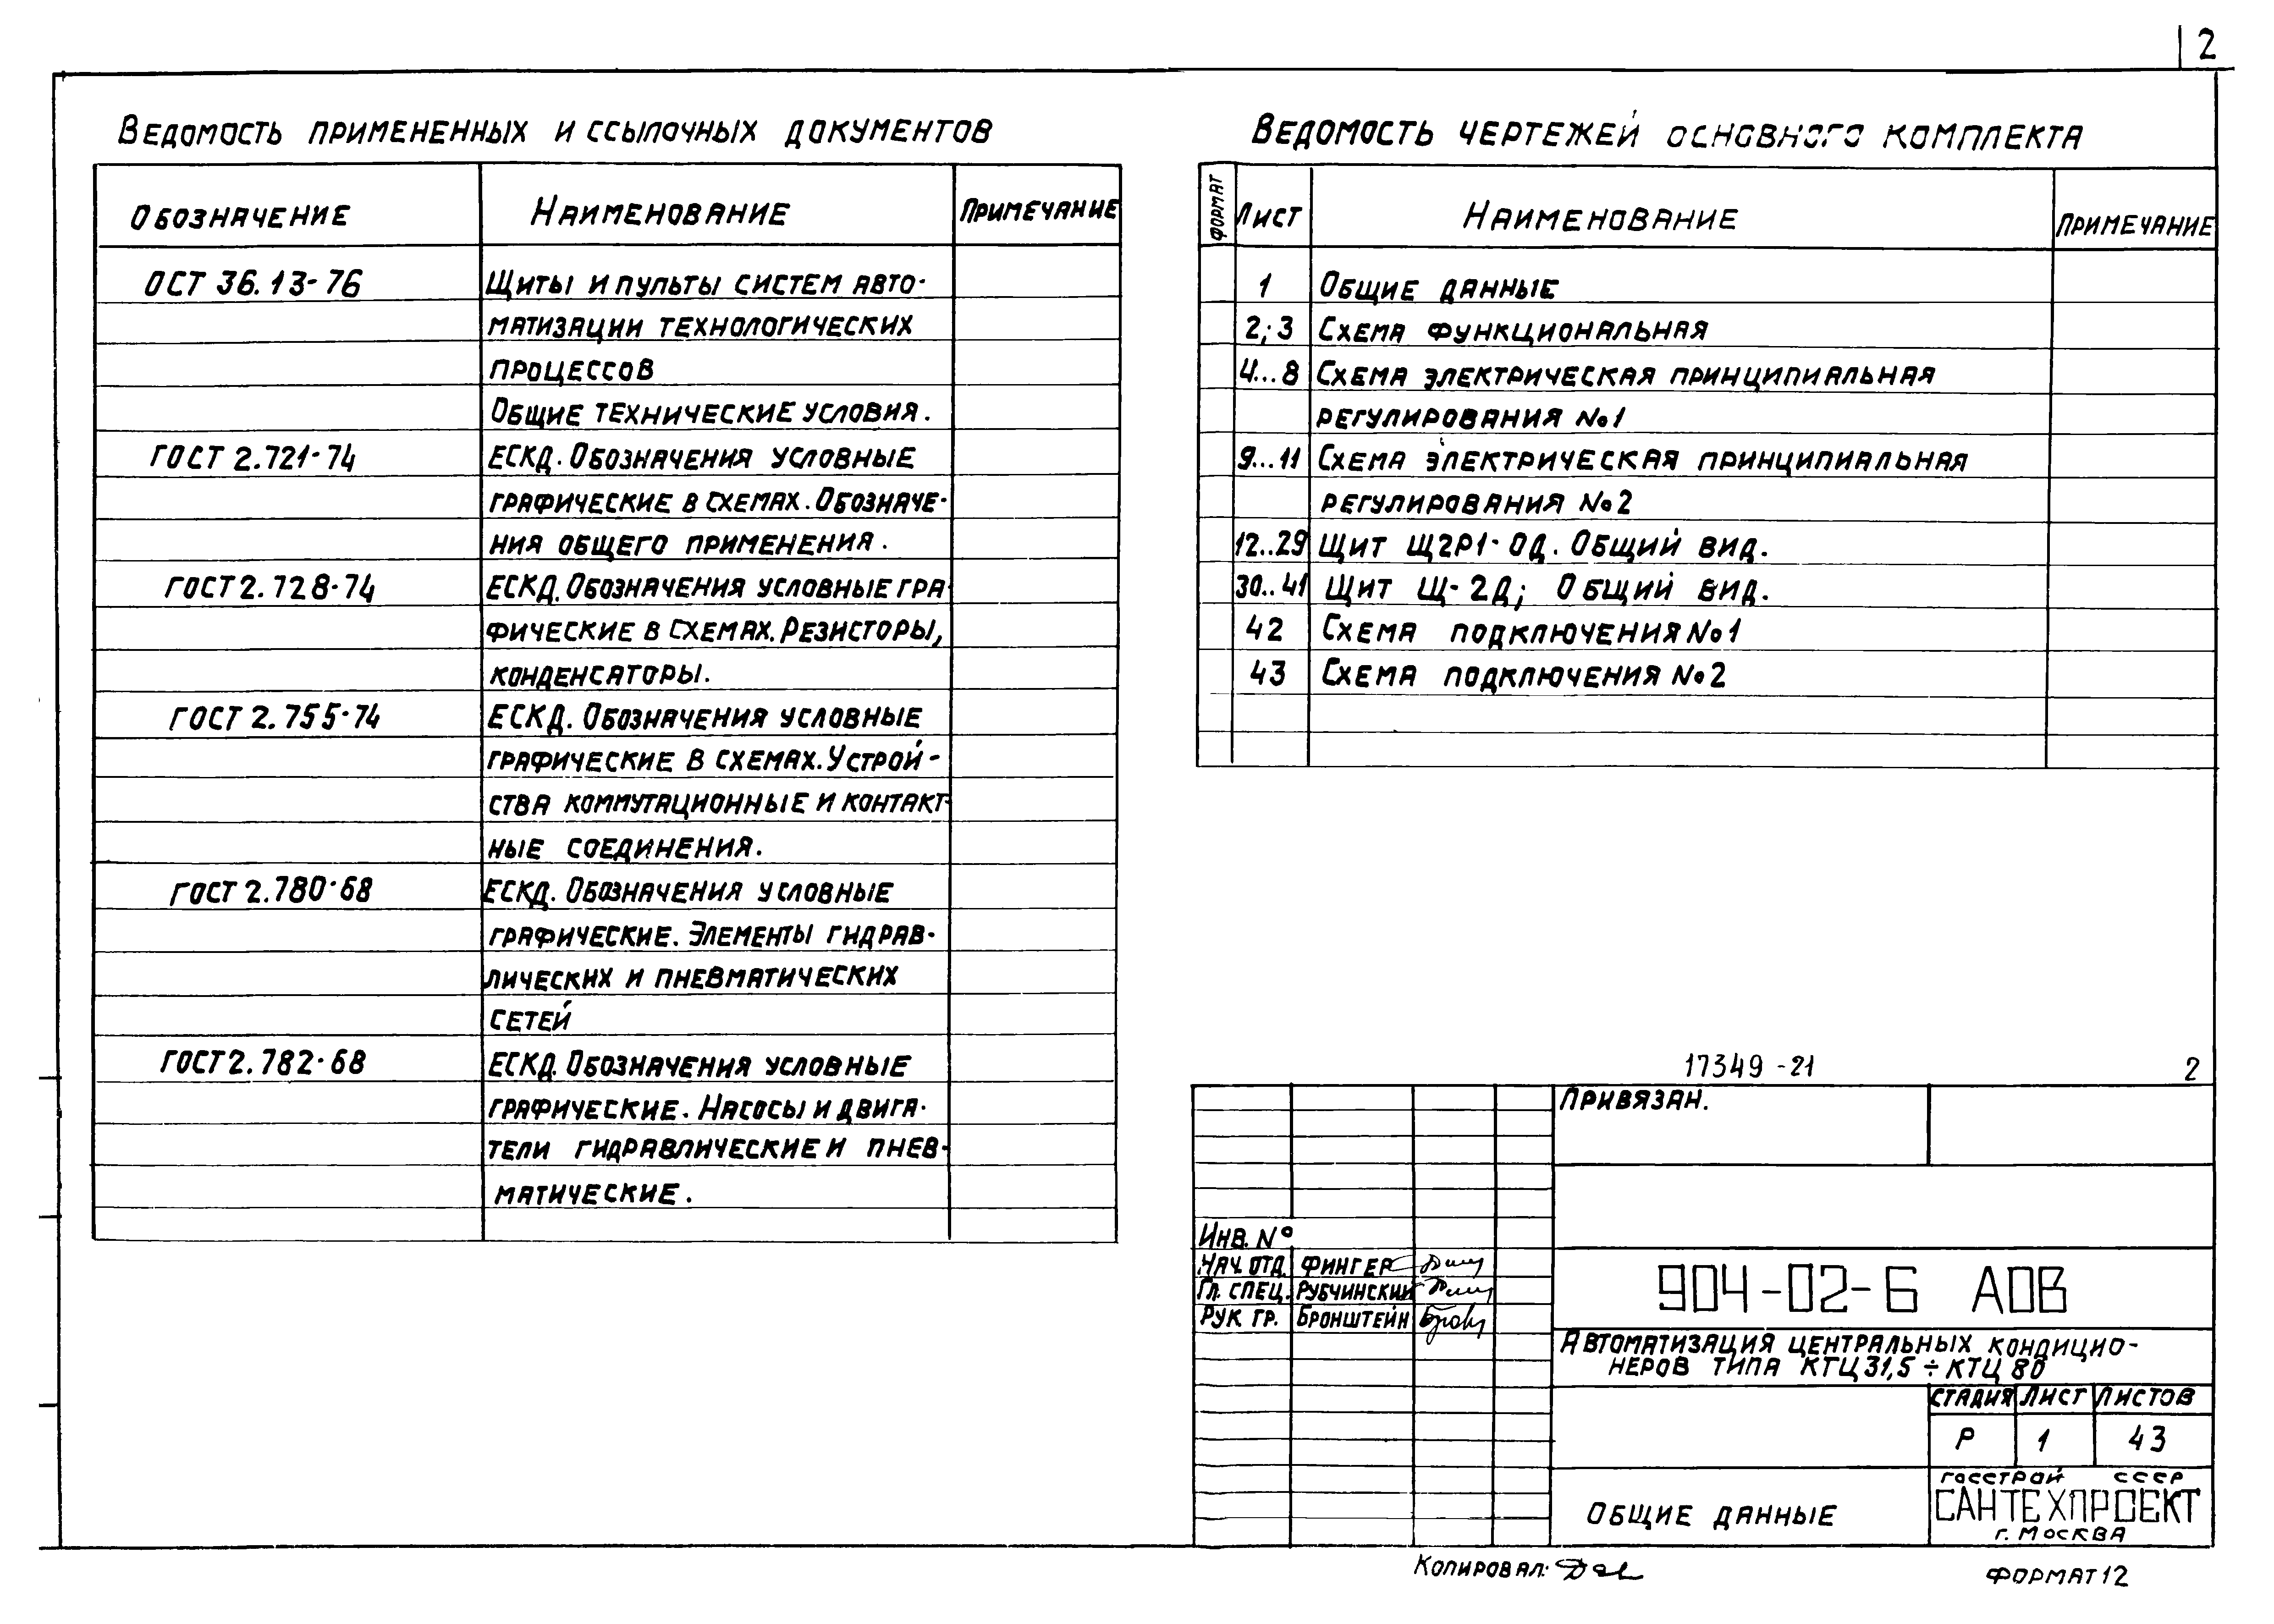 2
Ведомость примененных и ссылочных документов
Обозначение Наименование Примечание
ОСТ 36.13-76 Щиты и пульты систем авто-
матизации технологических
процессов
Общие технические условия.
ГОСТ 2.721-74 ЕСКД. Обозначения условные
графические в схемах. Обозначе-
ния общего применения.
ГОСТ 2.728-74 ЕСКД. Обозначения условные гра-
фические в схемах. Резисторы,
конденсаторы.
ГОСТ 2.755-74 ЕСКД. Обозначения условные
графические в схемах. Устрой-
ства коммутационные и контакт-
ные соединения.
ГОСТ 2.780-68 ЕСКД. Обозначения условные
графические. Элементы гидрав-
лических и пневматических
сетей
ГОСТ 2.782-68 ЕСКД. Обозначения условные
графические. Насосы и двига-
тели гидравлические и пнев-
матические.
Ведомость чертежей основного комплекта
Формат Лист Наименование Примечание
1 Общие данные
2; 3 Схема функциональная
4...8 Схема электрическая принципиальная
регулирования №1
9...11 Схема электрическая принципиальная
регулирования №2
12..29 Щит Щ2Р1-ОД. Общий вид.
30..41 Щит Щ-2Д; Общий вид.
42 Схема подключения №1
43 Схема подключения №2
17349-21 2
Привязан.
Инв. №
Нач. отд. Фингер
Гл. спец. Рубчинский
Рук гр. Бронштейн
904-02-6 АОВ
Автоматизация центральных кондицио-
неров типа КТЦ 31,5 ÷ КТЦ 80
Стадия Лист Листов
Р 1 43
Общие данные
Госстрой СССР
САНТЕХПРОЕКТ
г. Москва
Копировал:
Формат 12